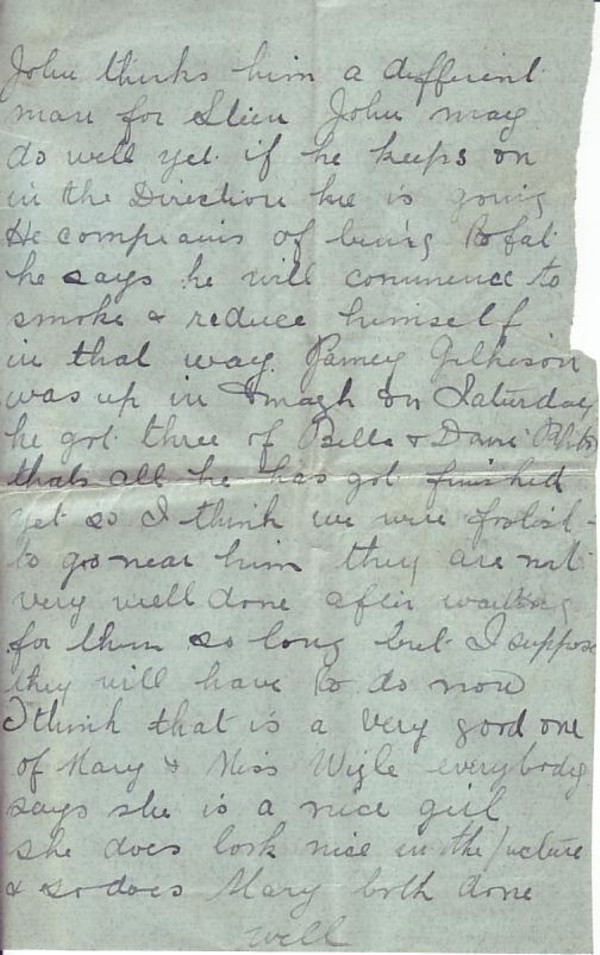 John thinks him a different
man for John may
do well yet if he keeps on
in the Direction he is going
He complains of being to fat
he says he will commence to
smoke & reduce himself
in that way. Gilkison
was up in Omagh on Saturday
he got three of Bella &
thats all he has got finished
yet so I think we were foolish
to go near him they are not
very well done after waiting
for them so long but I suppose
they will have to do now
I think that is a very good one
of Mary & Miss Wigle everybody
says she is a nice girl
she does look nice in the picture
& so does Mary both done
well